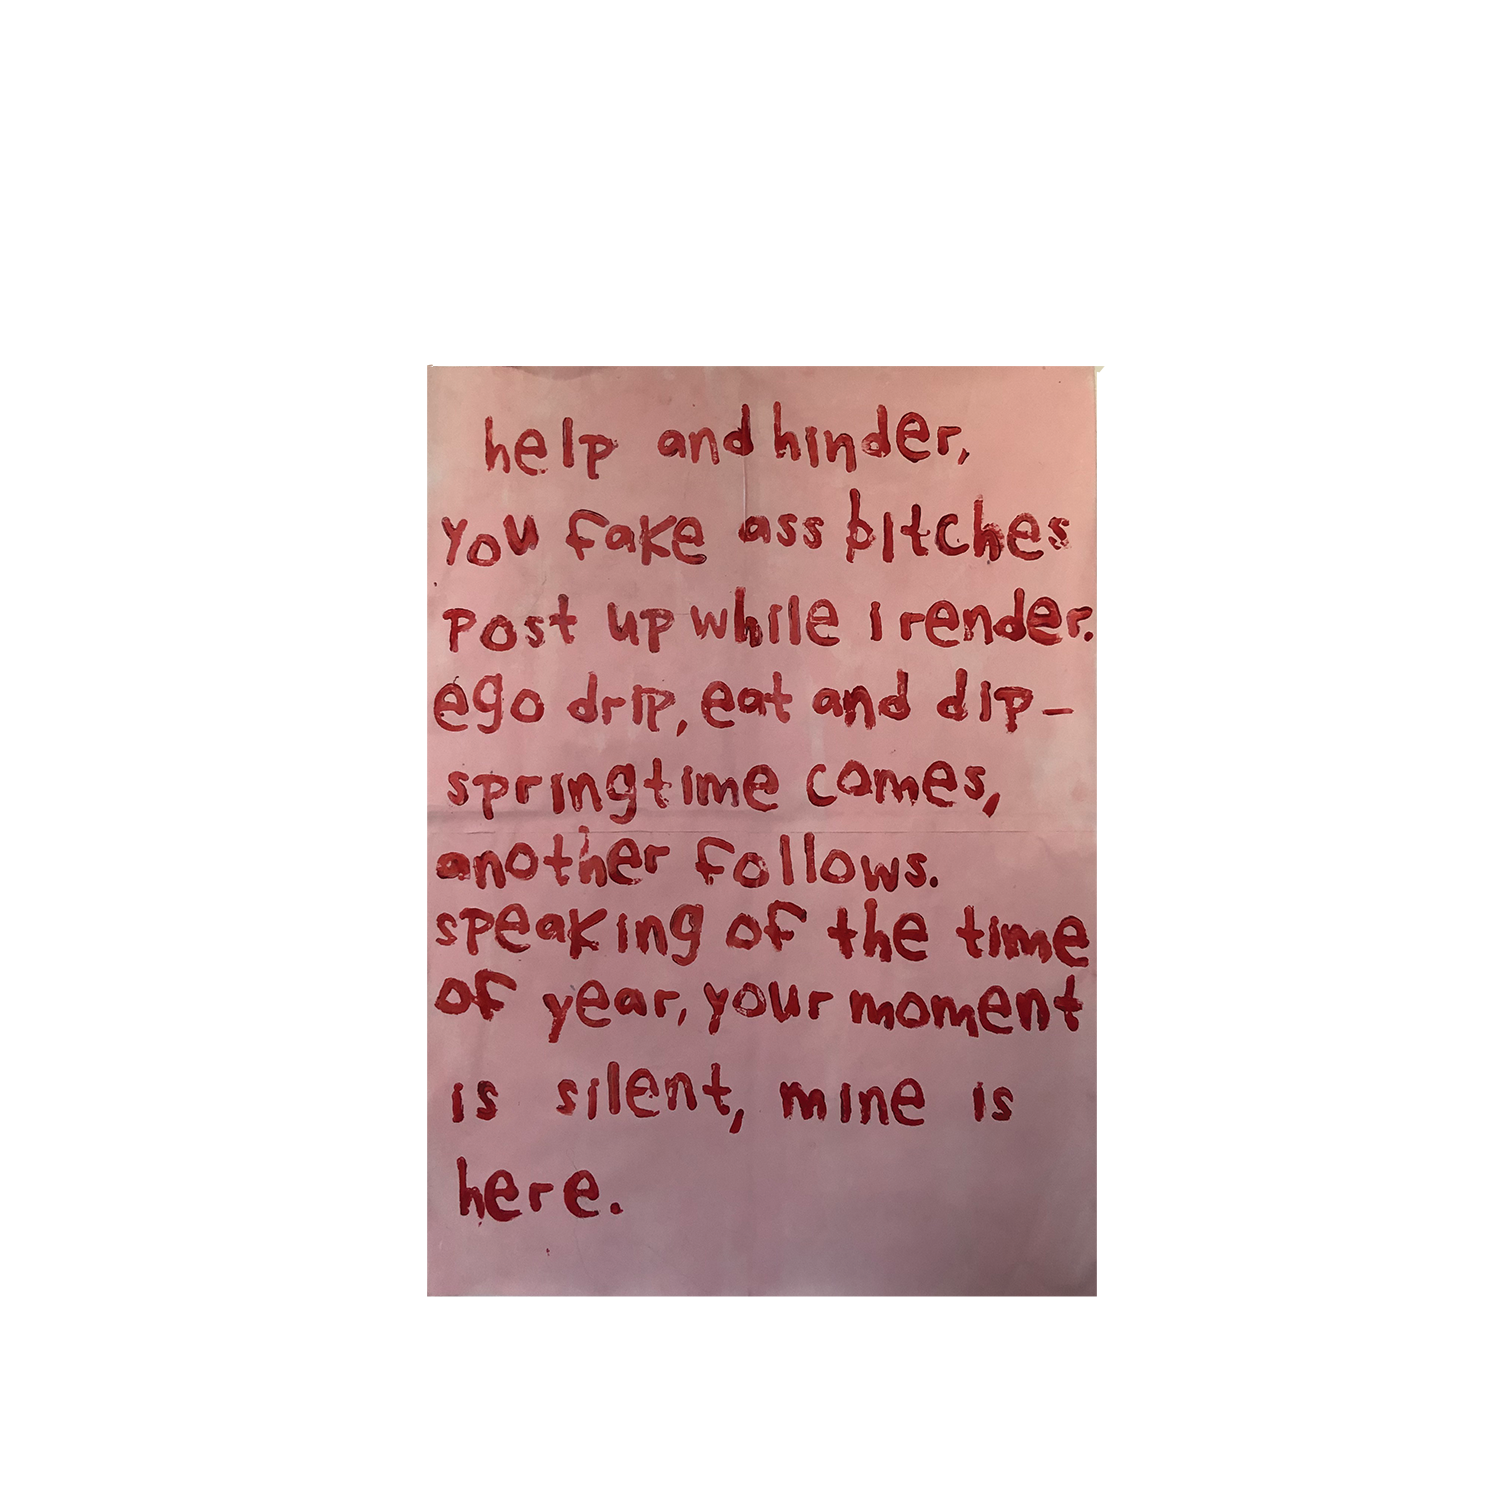 help and hinder,
you fake ass bitches
post up while i render.
ego drip, eat and dip-
springtime comes,
another follows.
speaking of the time
of year, your moment
is silent, mine is
here.